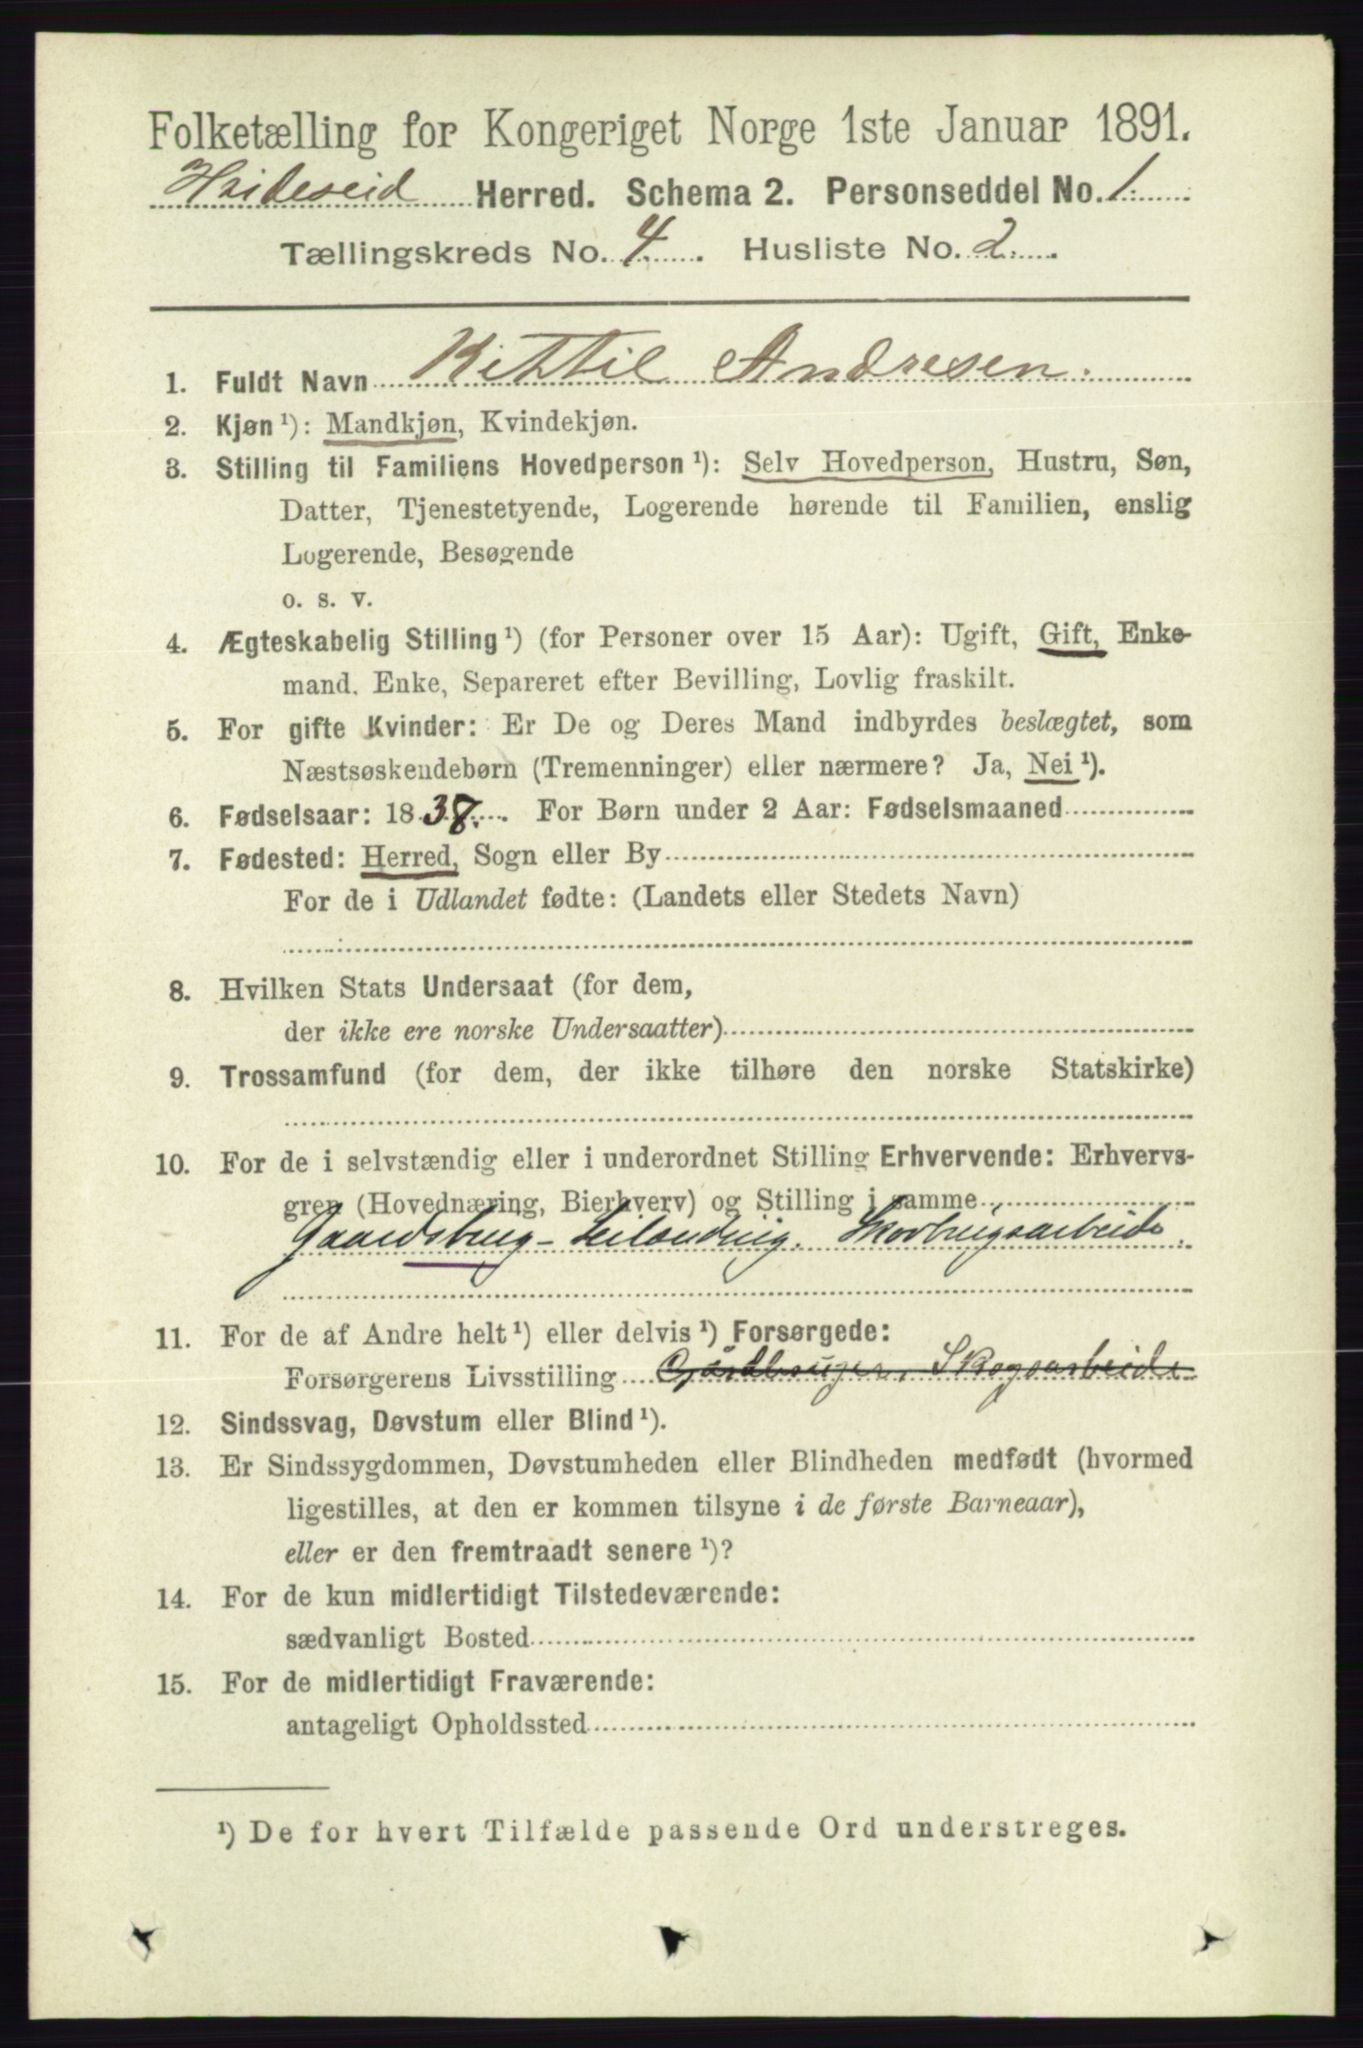 Folketælling for Kongeriget Norge 1ste Januar 1891.
Hvideseid Herred. Schema 2. Personseddel No. 1.
Tællingskreds No. 4. Husliste No. 2.
1. Fuldt Navn Kittil Andresen.
2. Kjøn¹): Mandkjøn, Kvindekjøn.
3. Stilling til Familiens Hovedperson¹): Selv Hovedperson, Hustru, Søn,
Datter, Tjenestetyende, Logerende hørende til Familien, enslig
Logerende, Besøgende
o. s. v.
4. Ægteskabelig Stilling¹) (for Personer over 15 Aar): Ugift, Gift, Enke-
mand, Enke, Separeret efter Bevilling, Lovlig fraskilt.
5. For gifte Kvinder: Er De og Deres Mand indbyrdes beslægtet, som
Næstsøskendebørn (Tremenninger) eller nærmere? Ja, Nei¹).
6. Fødselsaar: 1838. For Børn under 2 Aar: Fødselsmaaned
7. Fødested: Herred, Sogn eller By
For de i Udlandet fødte: (Landets eller Stedets Navn)
8. Hvilken Stats Undersaat (for dem,
der ikke ere norske Undersaatter)
9. Trossamfund (for dem, der ikke tilhøre den norske Statskirke)
10. For de i selvstændig eller i underordnet Stilling Erhvervende: Erhvervs-
gren (Hovednæring, Bierhverv) og Stilling i samme
Gaardsbrug - Leilænding.
11. For de af Andre helt¹) eller delvis¹) Forsørgede:
Forsørgerens Livsstilling Gårdbruger, Skogsarbeide
12. Sindssvag, Døvstum eller Blind¹).
13. Er Sindssygdommen, Døvstumheden eller Blindheden medfødt (hvormed
ligestilles, at den er kommen tilsyne i de første Barneaar),
eller er den fremtraadt senere¹)?
14. For de kun midlertidigt Tilstedeværende:
sædvanligt Bosted
15. For de midlertidigt Fraværende:
antageligt Opholdssted
¹) De for hvert Tilfælde passende Ord understreges.